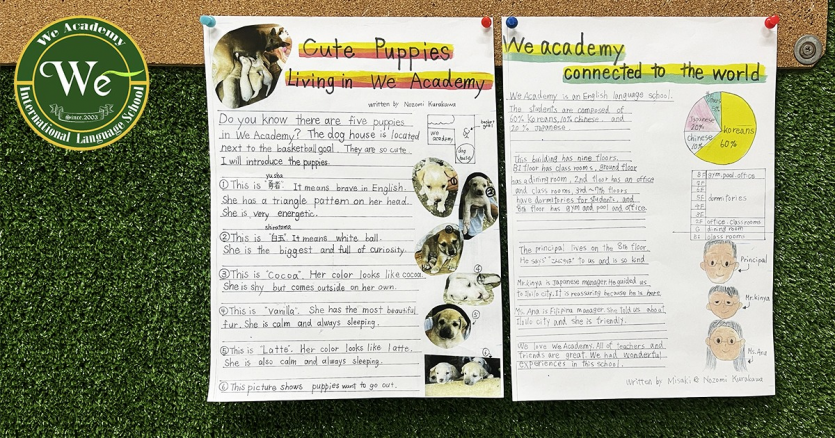 We Academy
We
Since.2003
International Language School
Cute Puppies
Living in We Academy
written by Nozomi Kurakawa
Do you know there are five puppies
in We Academy? The dog house is located
next to the basketball goal. They are so cute.
I will introduce the puppies.
we academy
dog house
yusha
① This is "勇者". It means brave in English.
She has a triangle pattern on her head.
She is very energetic.
shiratama
② This is "白玉". It means white ball.
She is the biggest and full of curiosity.
③ This is "Cocoa". Her color looks like cocoa.
She is shy but comes outside on her own.
④ This is "Vanilla". She has the most beautiful
fur. She is calm and always sleeping.
⑤ This is "Latte". Her color looks like latte.
She is also calm and always sleeping.
⑥ This picture shows puppies want to go out.
We academy
connected to the world
We Academy is an English language school.
The students are composed of
60% Koreans, 10% Chinese, and
20% Japanese.
Koreans
60%
Japanese
20%
Chinese
10%
This building has nine floors.
B1 floor has class rooms, ground floor
has a dining room, 2nd floor has an office
and class rooms, 3rd~7th floors
have dormitories for students, and
8th floor has gym and pool and office.
8F gym. pool. office
dormitories
2F office. class rooms
G dining room
B1 class rooms
The principal lives on the 8th floor.
to us and is so kind.
Principal
Mr.kinya is Japanese manager. He guided us
to Iloilo city. It is reassuring because he is here.
Mr.kinya
Ms. Ana is Filipina manager. She told us about
Iloilo city and she is friendly.
Ms. Ana
We love We Academy. All of teachers and
friends are great. We had wonderful
experiences in this school.
Written by Misaki & Nozomi Kurakawa